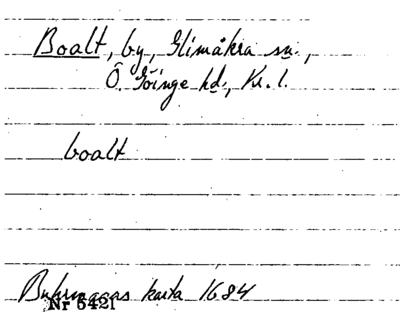 Boalt, by, Glimåkra sn.,
Ö. Göinge hd., Kr. l.
boalt
Buhrmanns karta 1684
Nr 5421